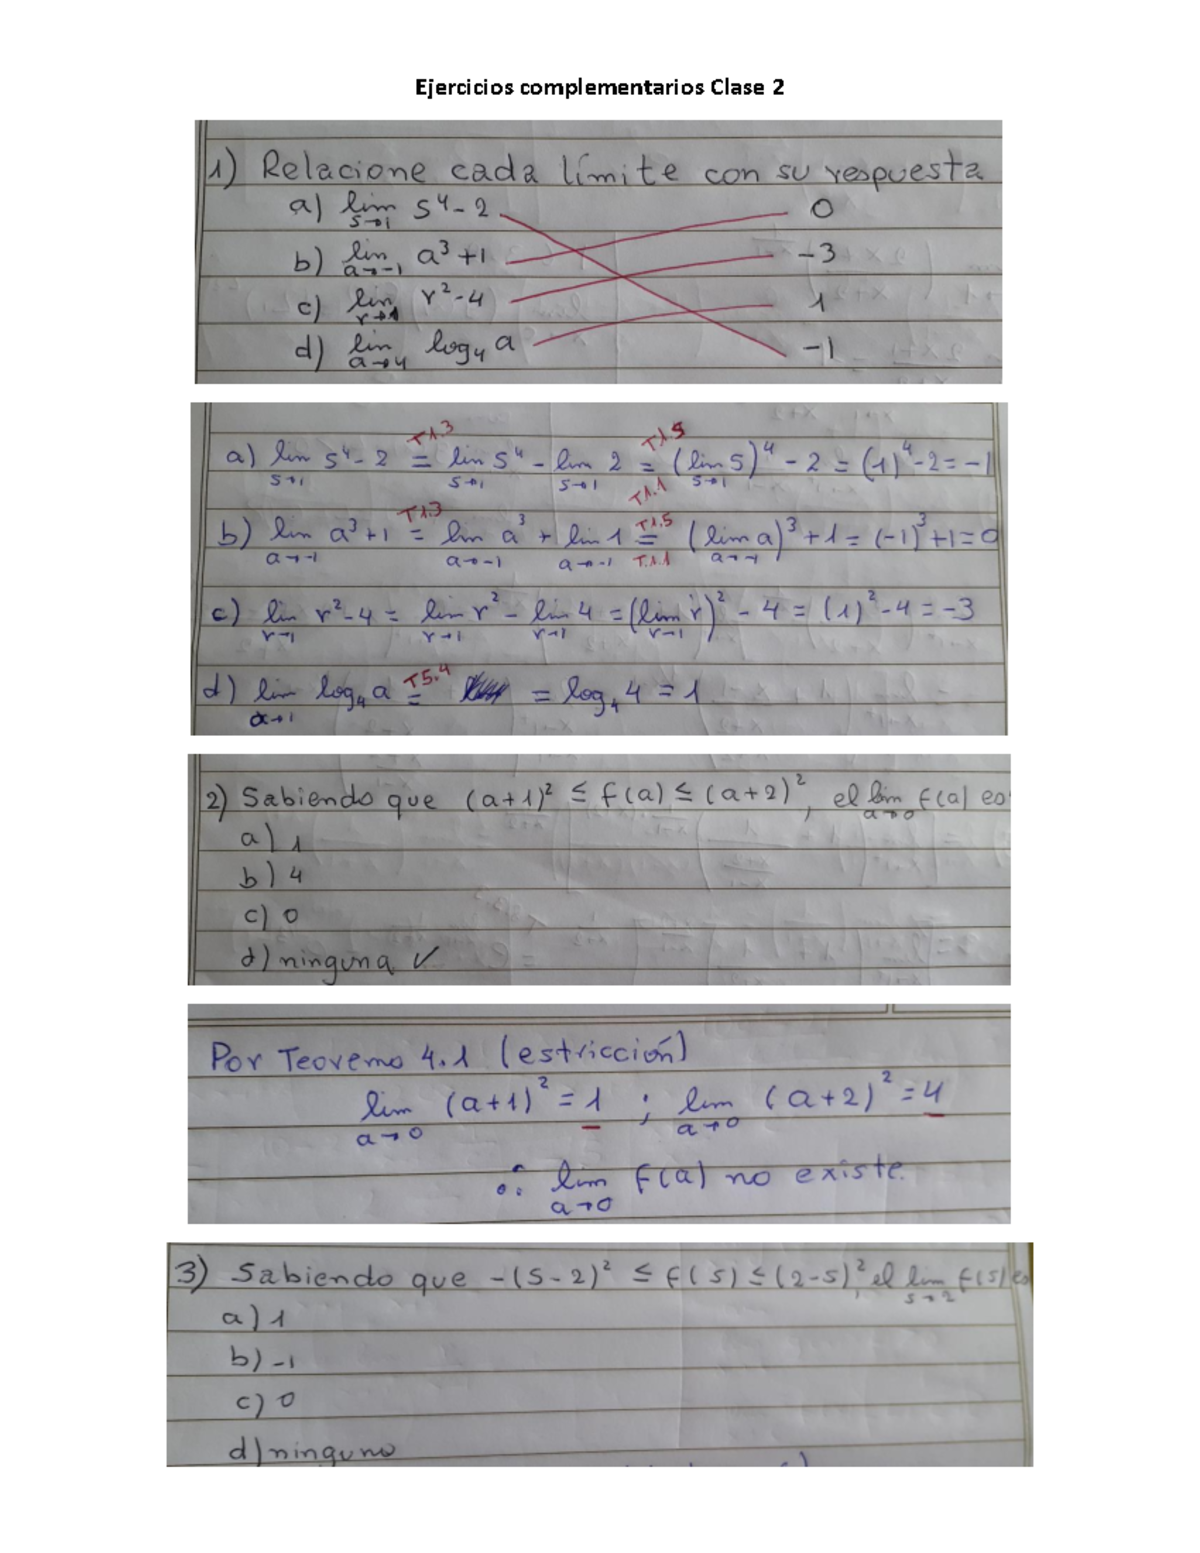 Ejercicios complementarios Clase 2
1) Relacione cada límite con su respuesta
a) lim s→1 s⁴ - 2    0
b) lim a→-1 a³ + 1    -3
c) lim r→1 r² - 4    1
d) lim a→4 log₄ a    -1
a) lim s→1 s⁴ - 2 =(T1.3) lim s→1 s⁴ - lim s→1 2 =(T1.5 T1.1) (lim s→1 s)⁴ - 2 = (1)⁴ - 2 = -1
b) lim a→-1 a³ + 1 =(T1.3) lim a→-1 a³ + lim a→-1 1 =(T1.5 T.1.1) (lim a→-1 a)³ + 1 = (-1)³ + 1 = 0
c) lim r→1 r² - 4 = lim r→1 r² - lim r→1 4 = (lim r→1 r)² - 4 = (1)² - 4 = -3
d) lim a→1 log₄ a =(T5.4) = log₄ 4 = 1
2) Sabiendo que (a+1)² ≤ f(a) ≤ (a+2)², el lim a→0 f(a) es:
a) 1
b) 4
c) 0
d) ninguna ✓
Por Teorema 4.1 (estricción)
lim a→0 (a+1)² = 1 ; lim a→0 (a+2)² = 4
∴ lim a→0 f(a) no existe.
3) Sabiendo que -(s-2)² ≤ f(s) ≤ (2-s)², el lim s→2 f(s) es
a) 1
b) -1
c) 0
d) ninguno